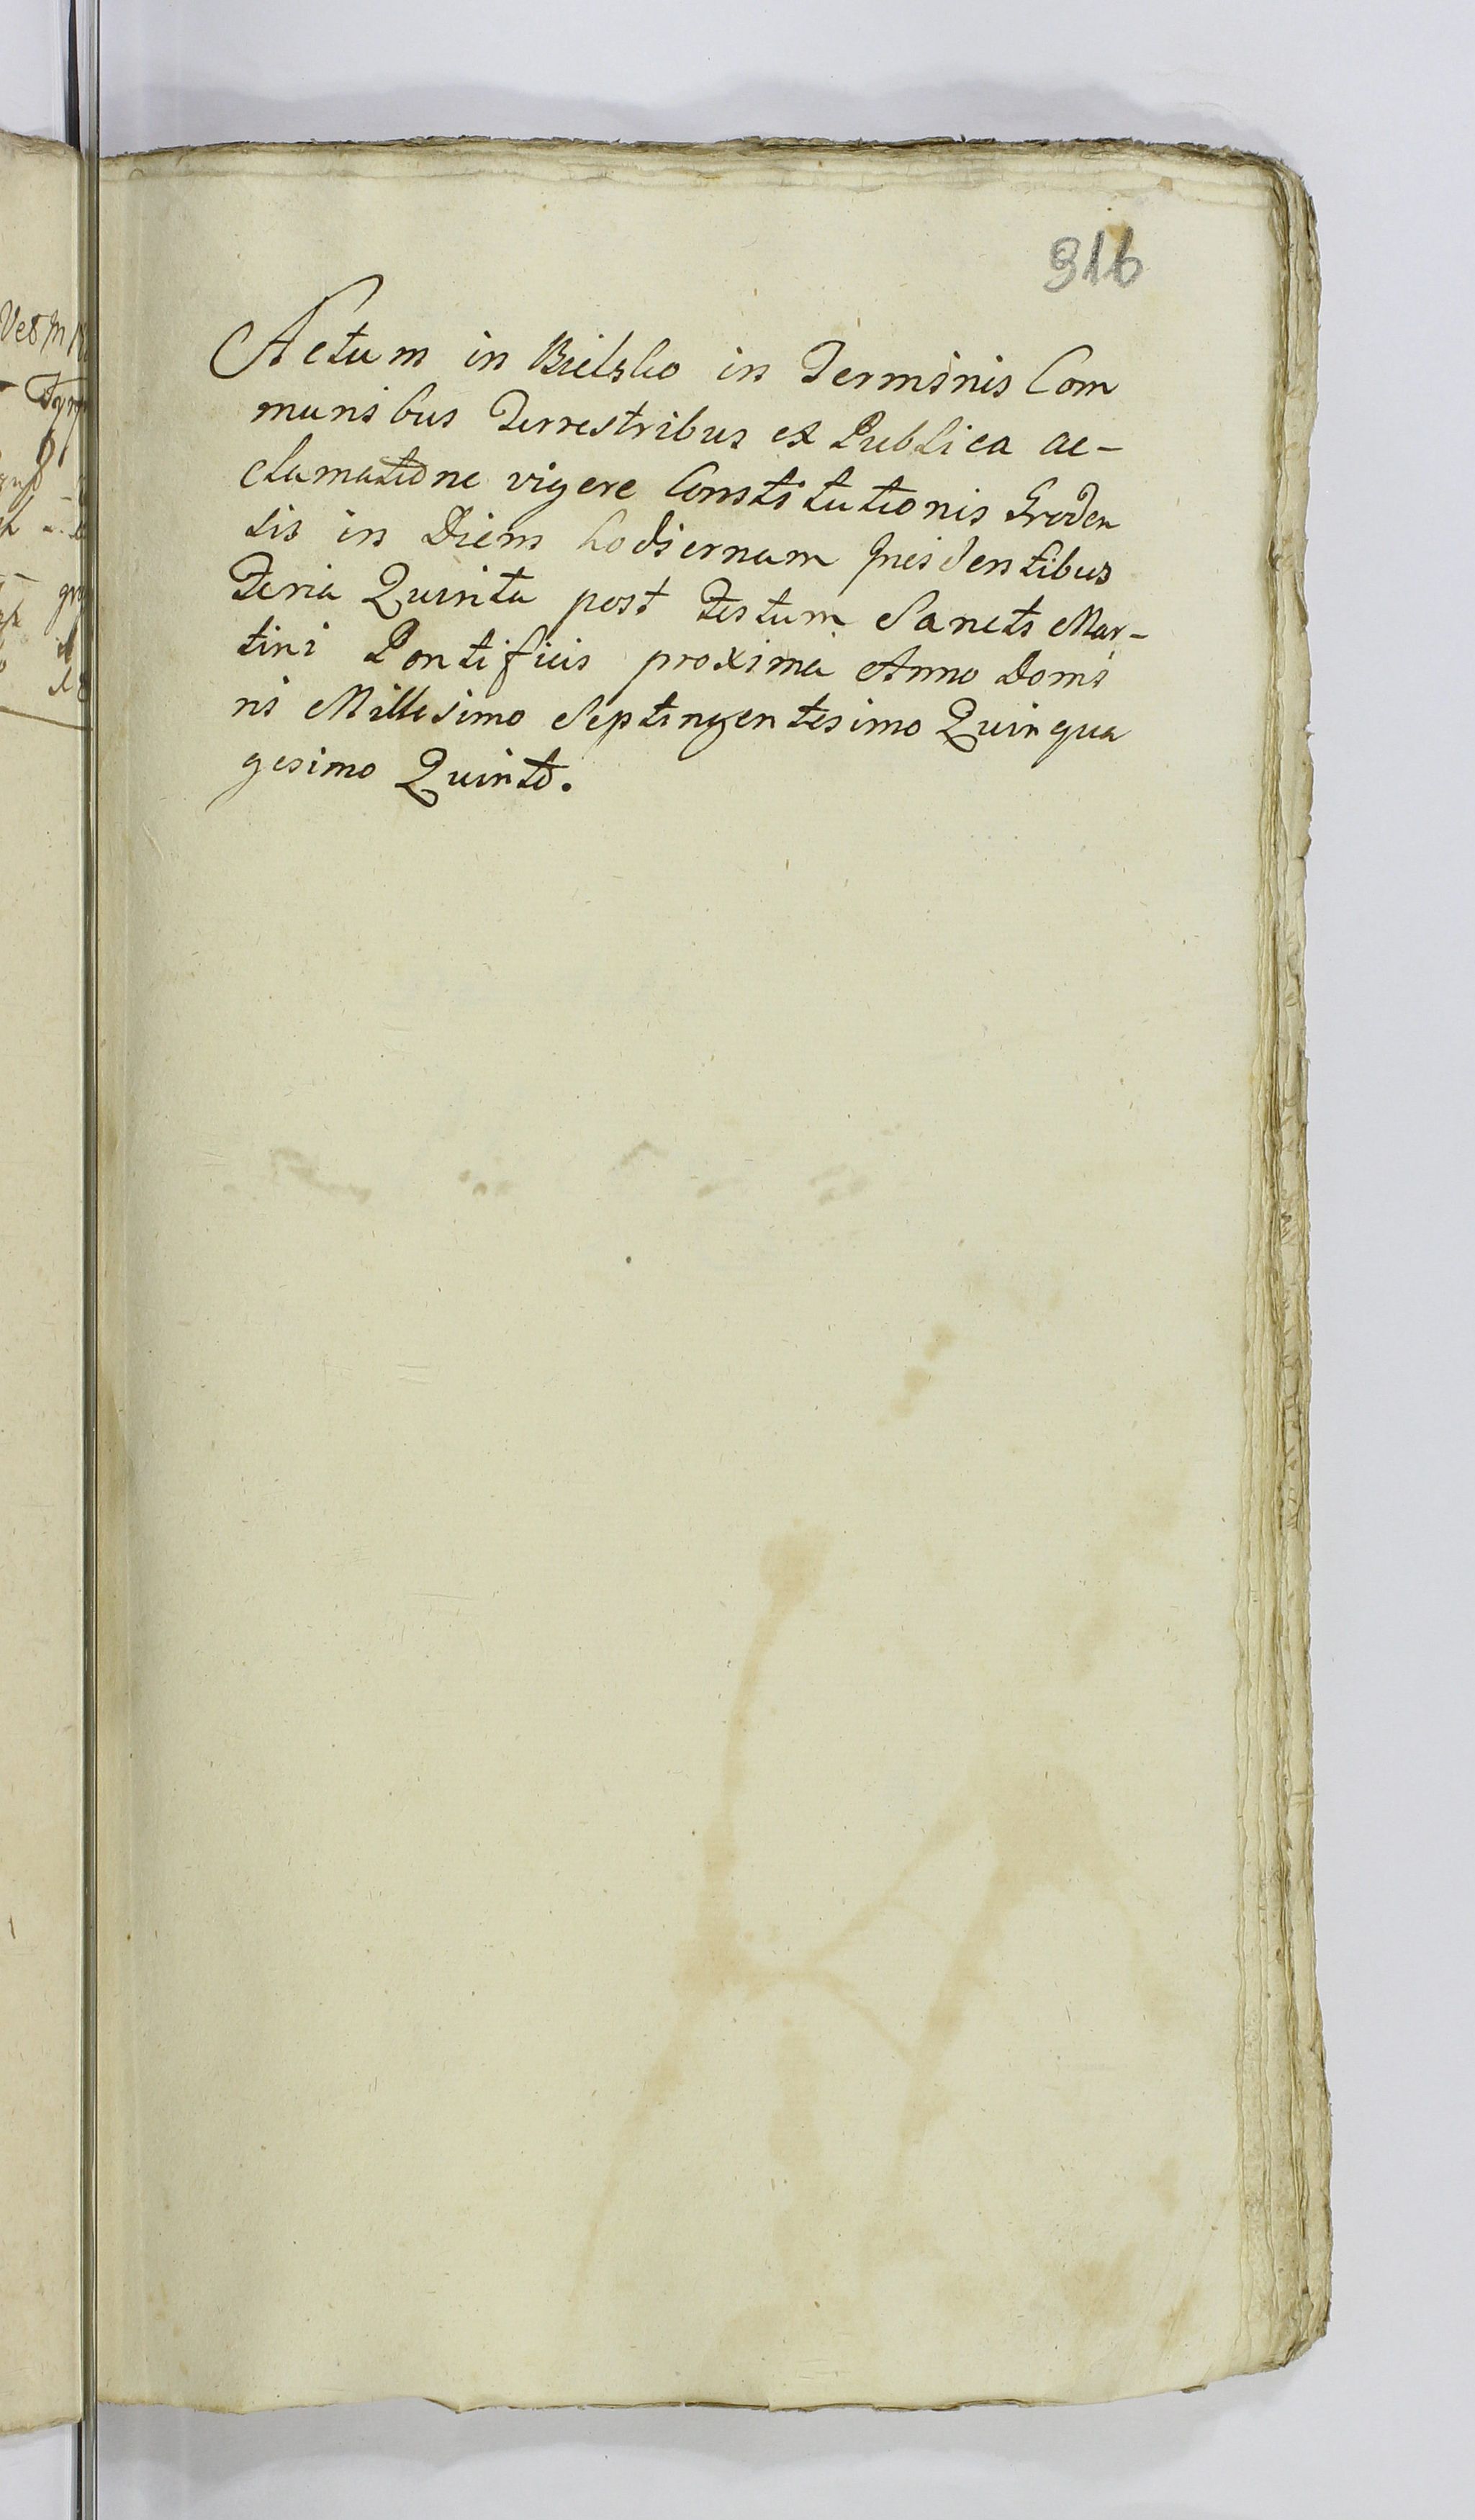 316
Actum in Bielsko in Terminis Com
munibus Terrestribus ex Publica ac-
clamatione vigore Constitutionis Groden
sis in Diem hodiernam incidentibus
Feria Quinta post Festum Sancti Mar-
tini Pontificis proxima Anno Domi
ni Millesimo Septingentesimo Quinqua
gesimo Quinto.